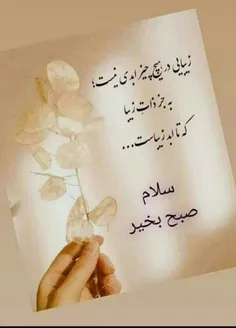 زیبایی در هیچ چیز ابدی نیست؛
به جز ذاتِ زیبا
که تا ابد زیباست...
سلام
صبح بخیر